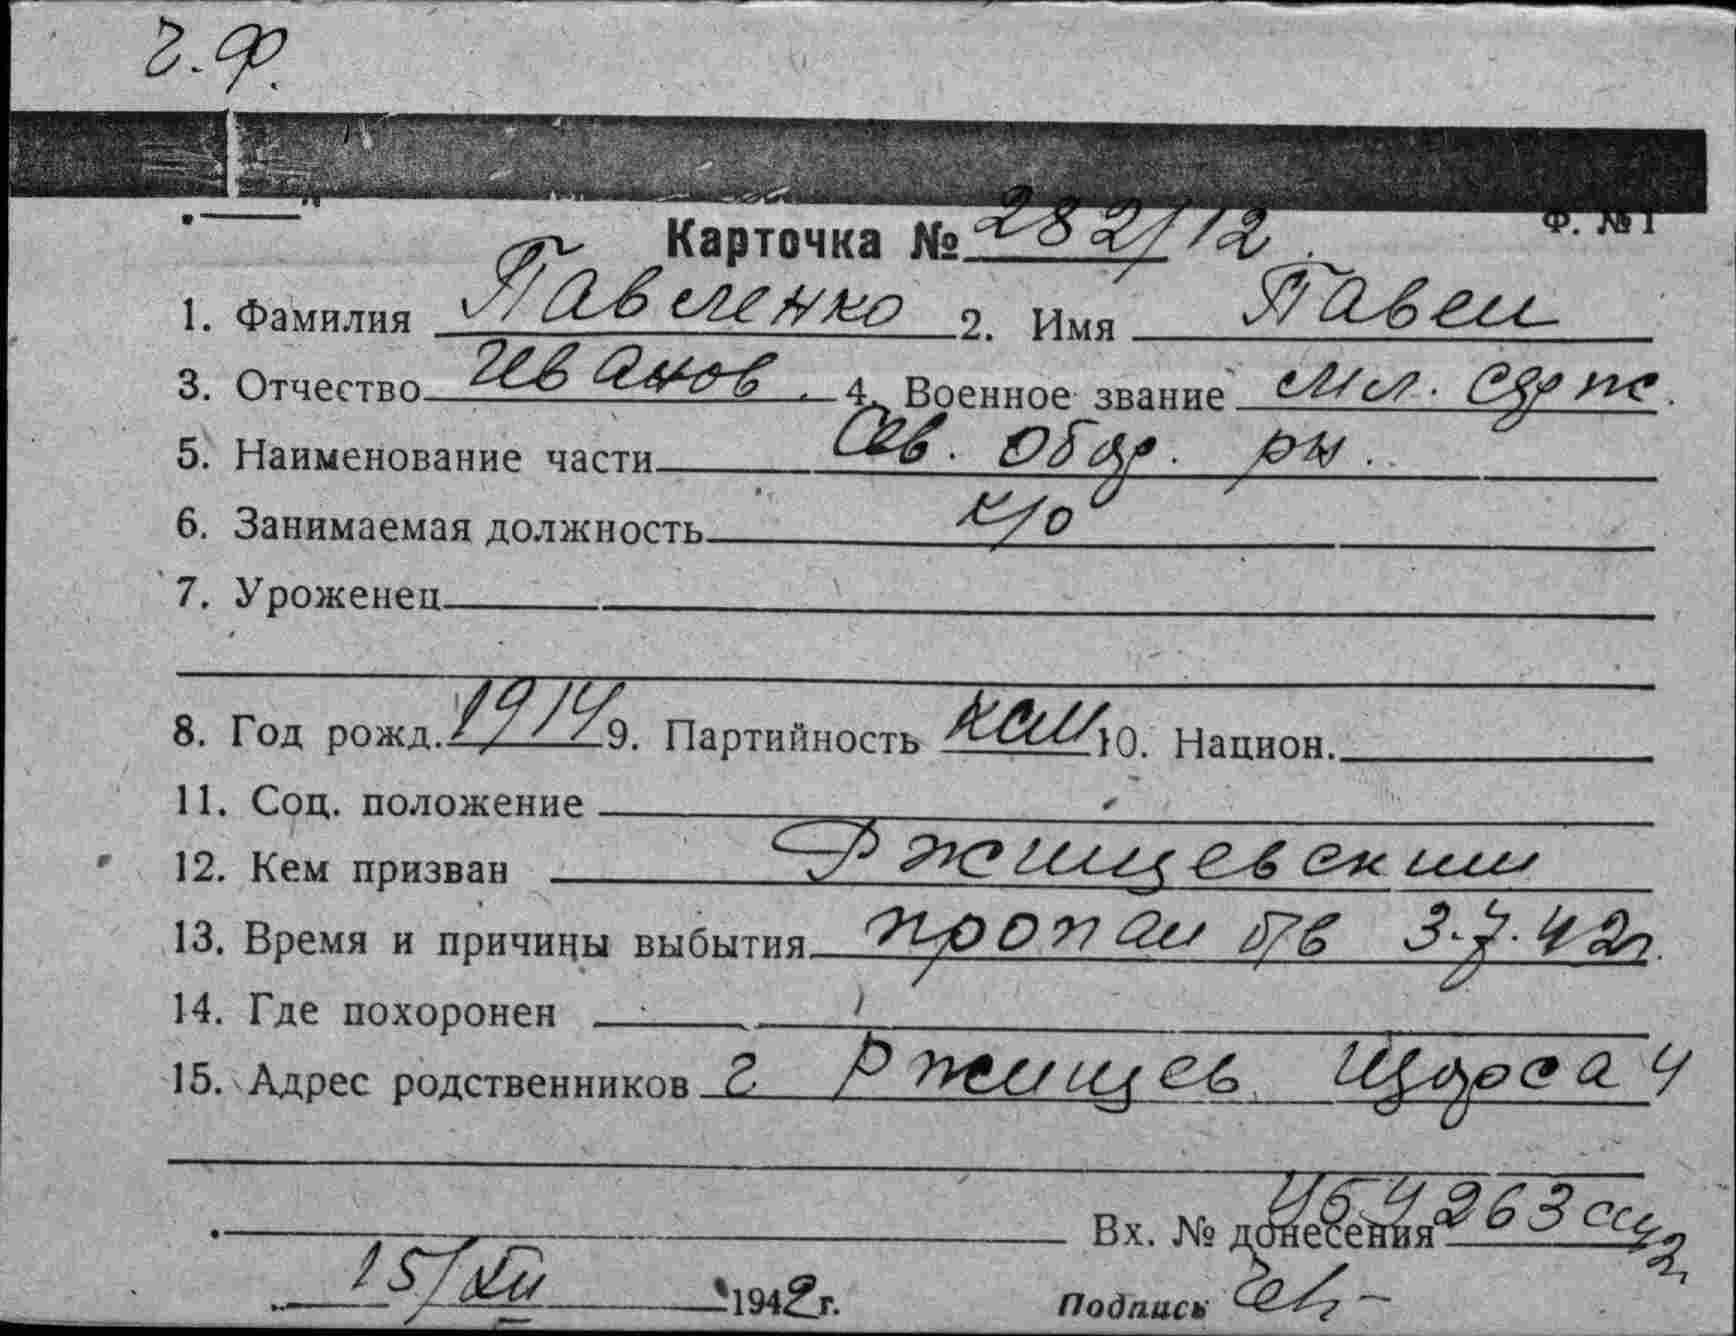 г.Ф.
Ф. №1
Карточка № 282/12
1. Фамилия Павленко 2. Имя Павел
3. Отчество Иванов. 4. Военное звание мл. серж.
5. Наименование части Сев. Обор. рн.
6. Занимаемая должность к/о
7. Уроженец
8. Год рожд. 1914 9. Партийность 10. Национ.
11. Соц. положение
12. Кем призван Ржищевским
13. Время и причины выбытия пропал б/в 3.7.42г.
14. Где похоронен
15. Адрес родственников г Ржищев Щорса 4
Вх. № донесения
15/XII 1942г. Подпись